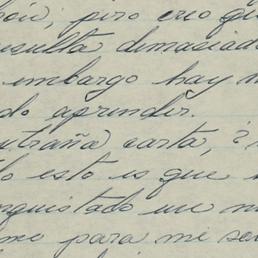 pero creo que
resulta demasiado
embargo hay
do aprender.
extraña carta, ¿
lo esto es que
nquistado un
me para me